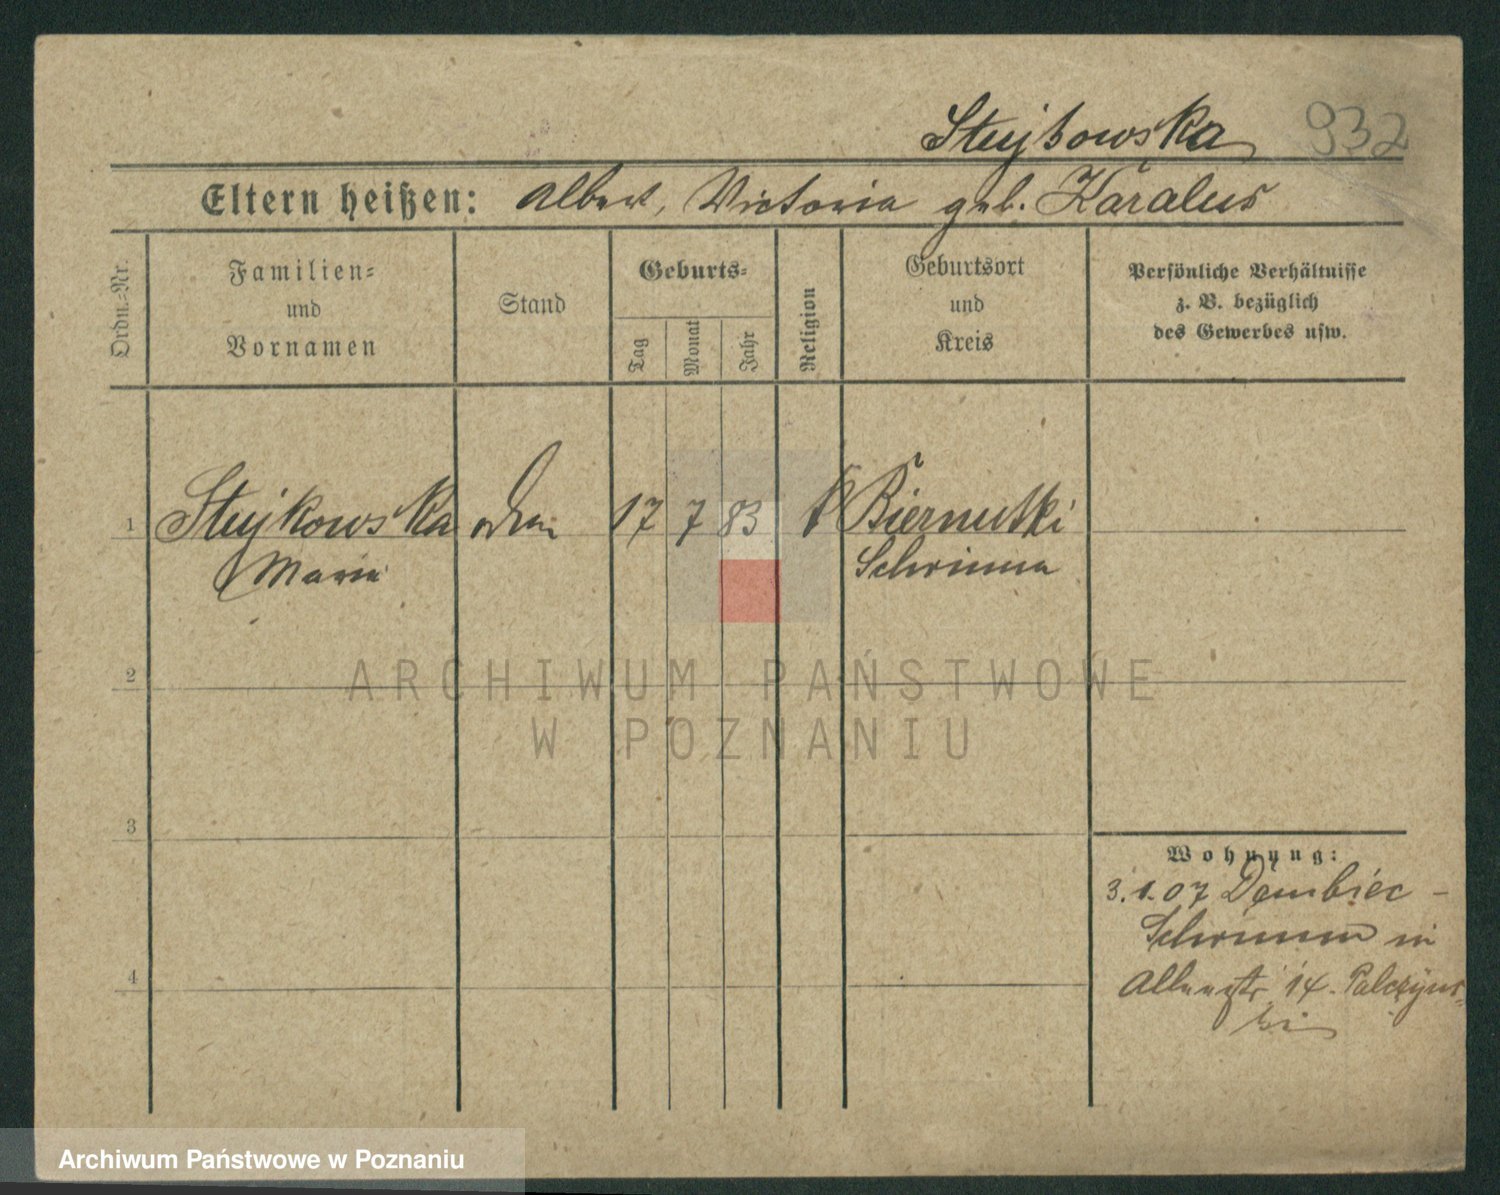 Stujkowska 932
Eltern heißen: Albert, Victoria geb. Karalus
Ordn.-Nr.
Familien-
und
Vornamen
Stand
Geburts-
Tag
Monat
Jahr
Religion
Geburtsort
und
Kreis
Persönliche Verhältnisse
z. B. bezüglich
des Gewerbes usw.
1 Stujkowska 17 7 83 k Biernatki
Marie Schrimm
2
3
4
Wohnung:
3.1.07 Dembiec -
Schrimm in
14. Palczyns-
ki
ARCHIWUM PAŃSTWOWE
W POZNANIU
Archiwum Państwowe w Poznaniu